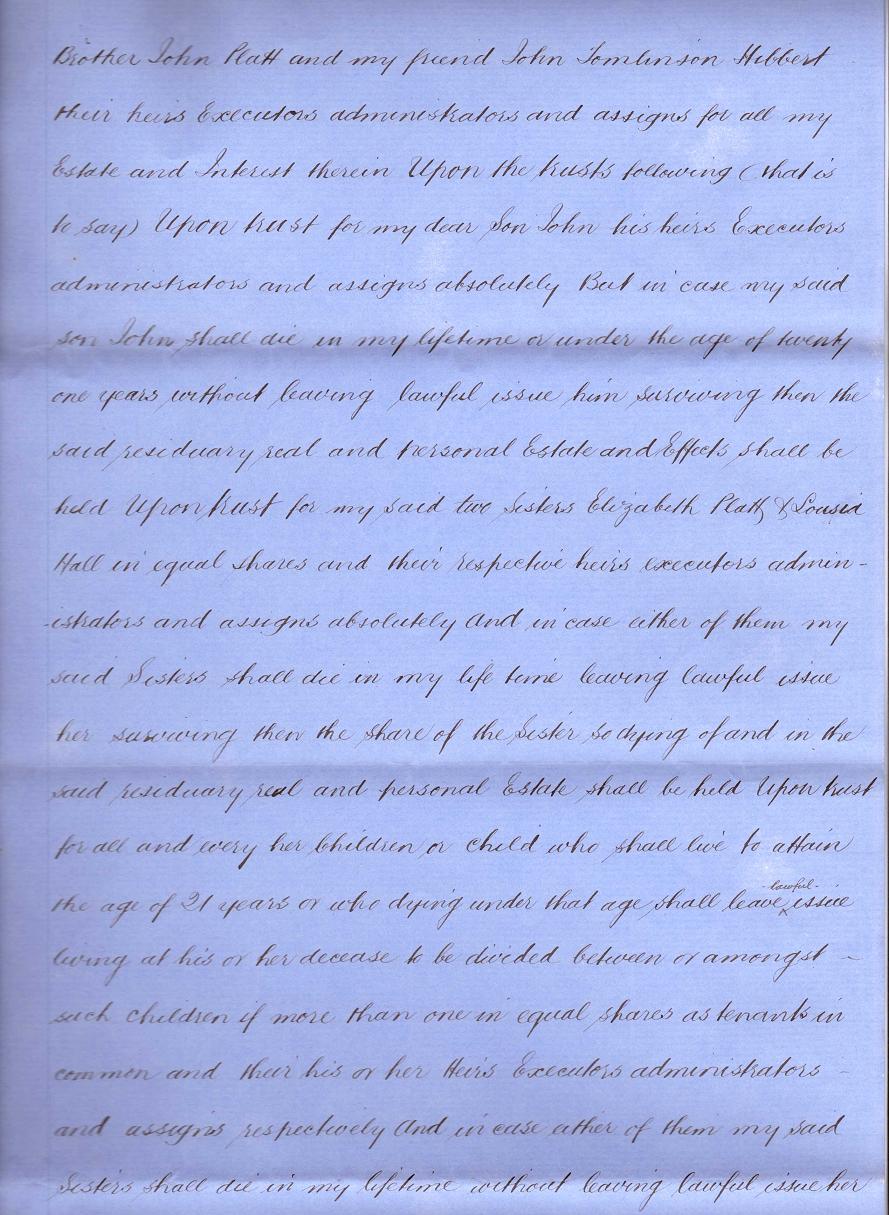 Brother John Platt and my friend John Tomlinson Hibbert
their heirs Executors administrators and assigns for all my
Estate and Interest therein Upon the trusts following (that is
to say) Upon trust for my dear Son John his heirs Executors
administrators and assigns absolutely But in case my said
son John shall die in my lifetime or under the age of twenty
one years without leaving lawful issue him surviving then the
said residuary real and personal Estate and Effects shall be
held Upon trust for my said two Sisters Elizabeth Platt & Lousia
Hall in equal shares and their respective heirs executors admin-
-istrators and assigns absolutely And in case either of them my
said Sisters shall die in my life time leaving lawful issue
her surviving then the share of the Sister so dying of and in the
said residuary real and personal Estate shall be held Upon trust
for all and every her Children or child who shall live to attain
the age of 21 years or who dying under that age shall leave lawful issue
living at his or her decease to be divided between or amongst -
such children if more than one in equal shares as tenants in
common and their his or her Heirs Executors administrators -
and assigns respectively And in case either of them my said
Sisters shall die in my lifetime without leaving lawful issue her